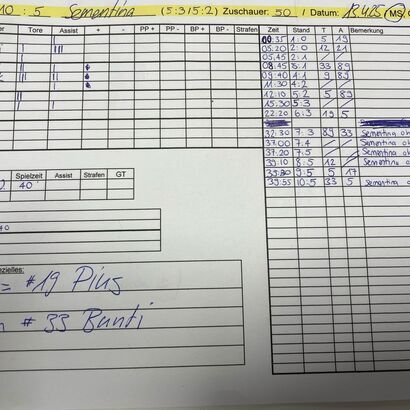 10 : 5 Sementina (5:3/5:2) Zuschauer: 50 / Datum: 13.4.25 (MS/
Tore Assist + - PP + PP - BP + BP - Strafen Zeit Stand T A Bemerkung
00.35 1:0 5 19
05.20 2:0 12 21
05.45 2:1 / /
08.45 3:1 33 89
09.40 4:1 9 89
11.30 4:2 / /
12.10 5:2 5 89
15.30 5:3
22.20 6:3 19 5
32.30 7:3 89 33 Sementina
37.00 7:4 / / Sementina
37.20 7:5 / / Sementina
39.10 8:5 12 / Sementina
39.30 9:5 5 17
39.55 10:5 33 5 Sementina
Spielzeit Assist Strafen GT
40'
40
ezielles:
= #19 Pius
# 33 Bunti